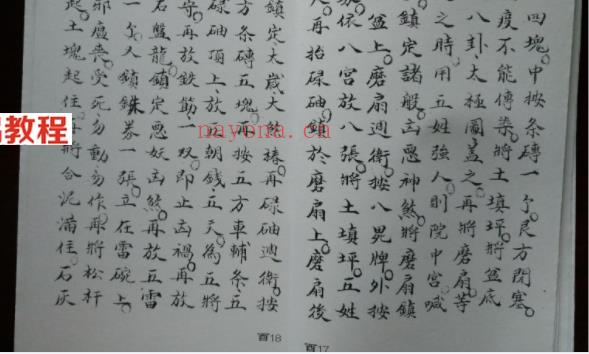 四塊。中按条磚一个。艮方閉塞。
疫不能傳染。將土填坪。將盆底
八卦太極圖蓋之。再將磨扇等
之時。用五姓強人。則院中宮。喊
鎮定諸般凶恶神煞。將磨扇鎮
盆上。磨扇週衛。按八晃牌。外按
依八宮放八張。將土填坪。五姓
人。再抬碌砷。鎮於磨扇上。磨扇後
百17
鎮定太歲大煞樁。再碌砷週衛。按
方条磚五塊。再按五方車輔条。五
碌砷頂上。放五朝錢。五天為五將
守。再放鉄筋一双。即止凶禍。再放
石盤龍鎮定恶妖凶煞。再放五雷
一个。天鎖銖券一張。立在雷碗上。
邪瘟喪受死。勿動勿作。再將松杆
起土塊起住。再將合泥滿住。石灰
百18
教程
nayona.cn